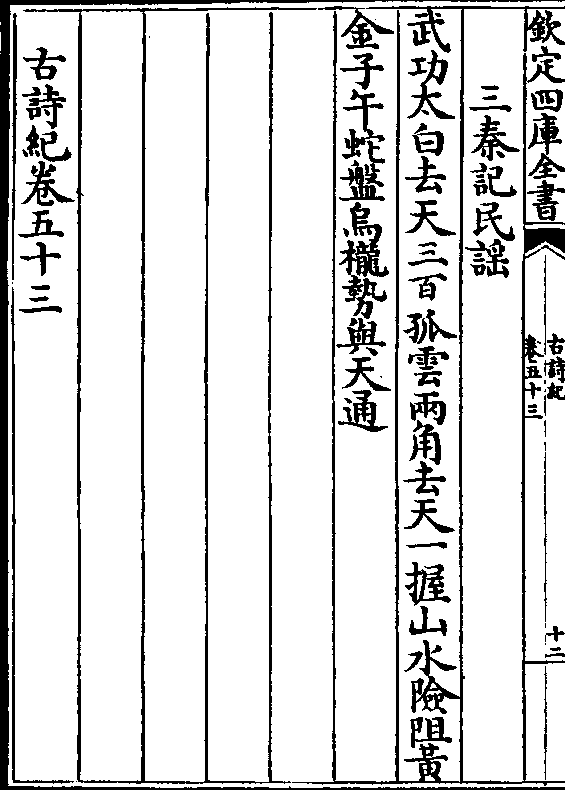 欽定四庫全書
古詩紀
卷五十三
十二
三秦記民謡
武功太白去天三百孤雲兩角去天一握山水險阻黃
金子午蛇盤烏櫳勢與天通
古詩紀卷五十三